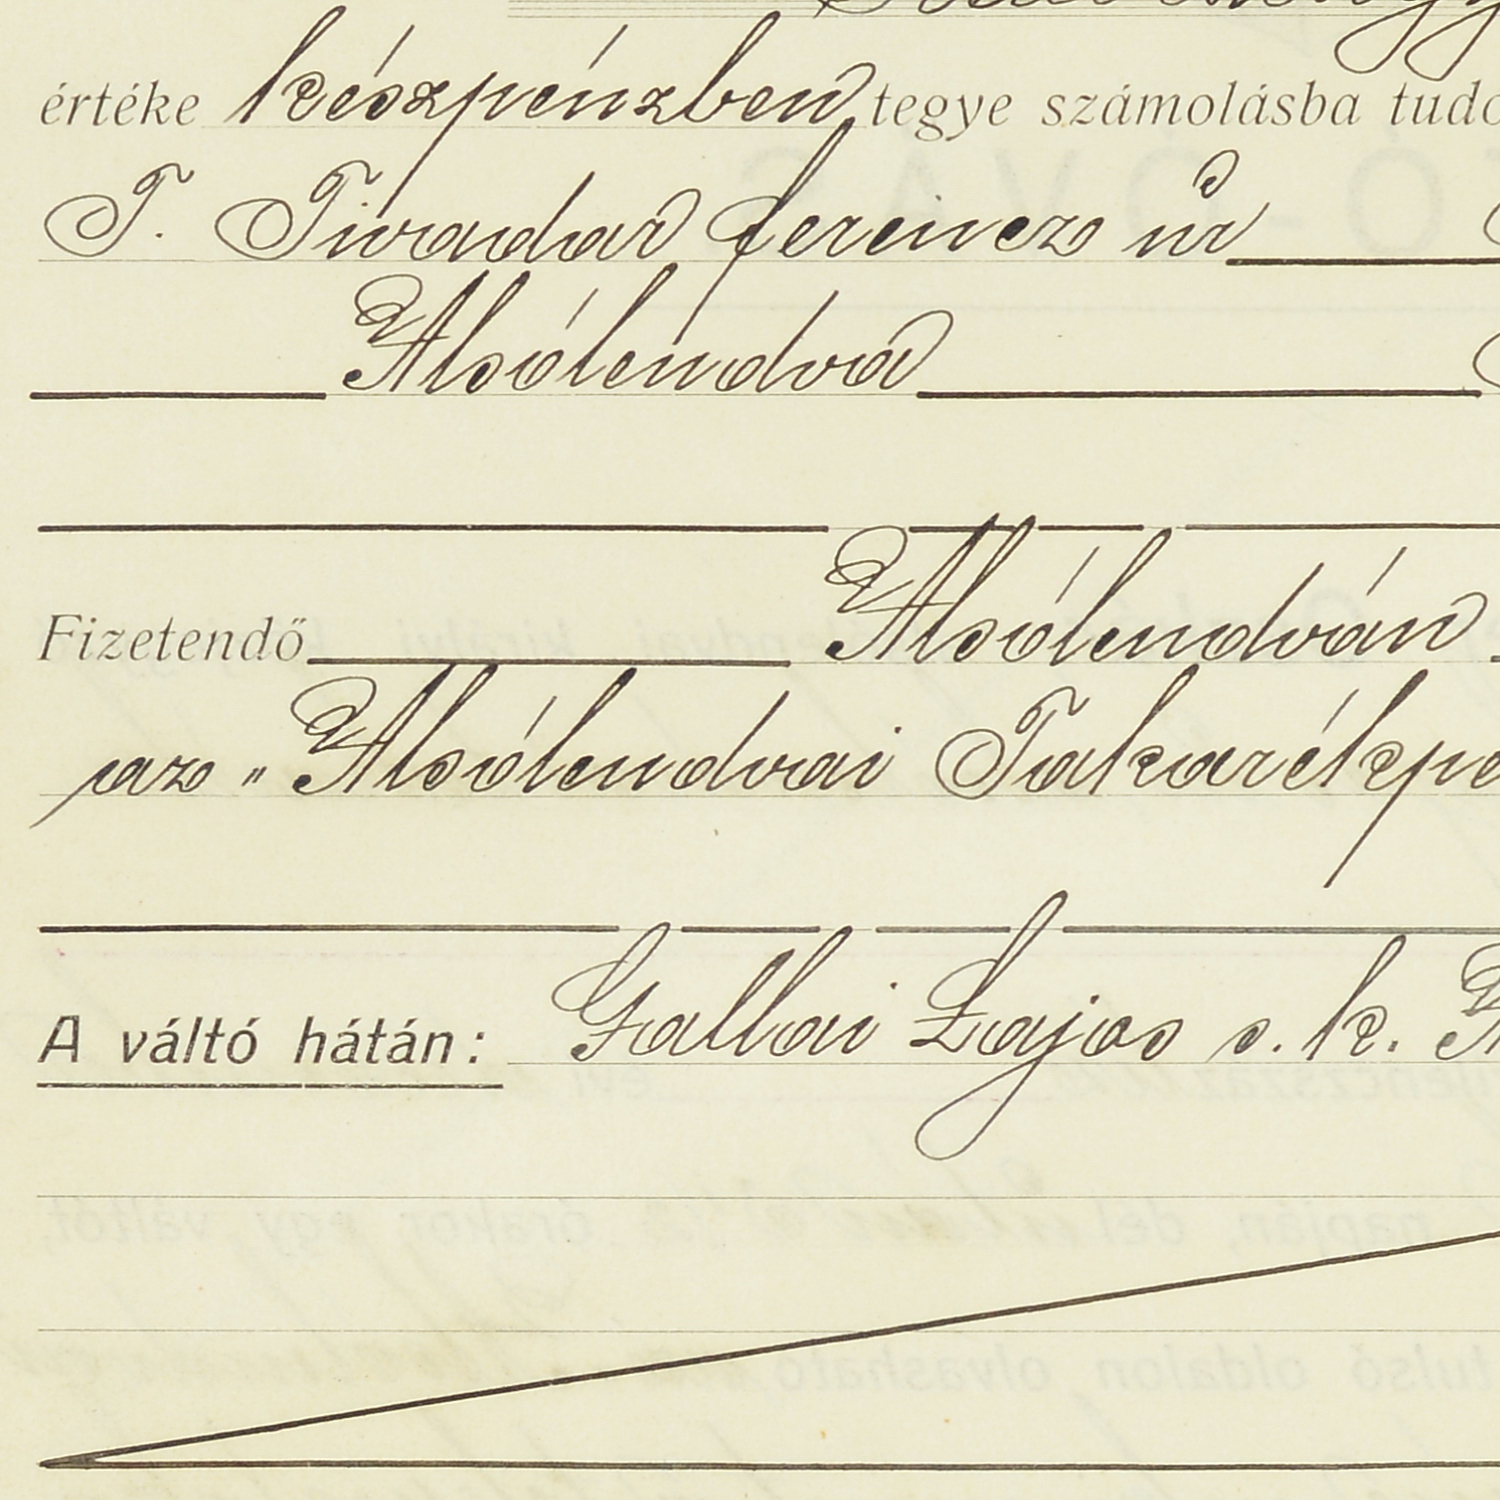 értéke készpénzben tegye számolásba
T. Tivadar Ferencz úr
Alsólendva
Fizetendő Alsólendván
az „Alsólendvai
A váltó hátán: Gallai Lajos s. k.